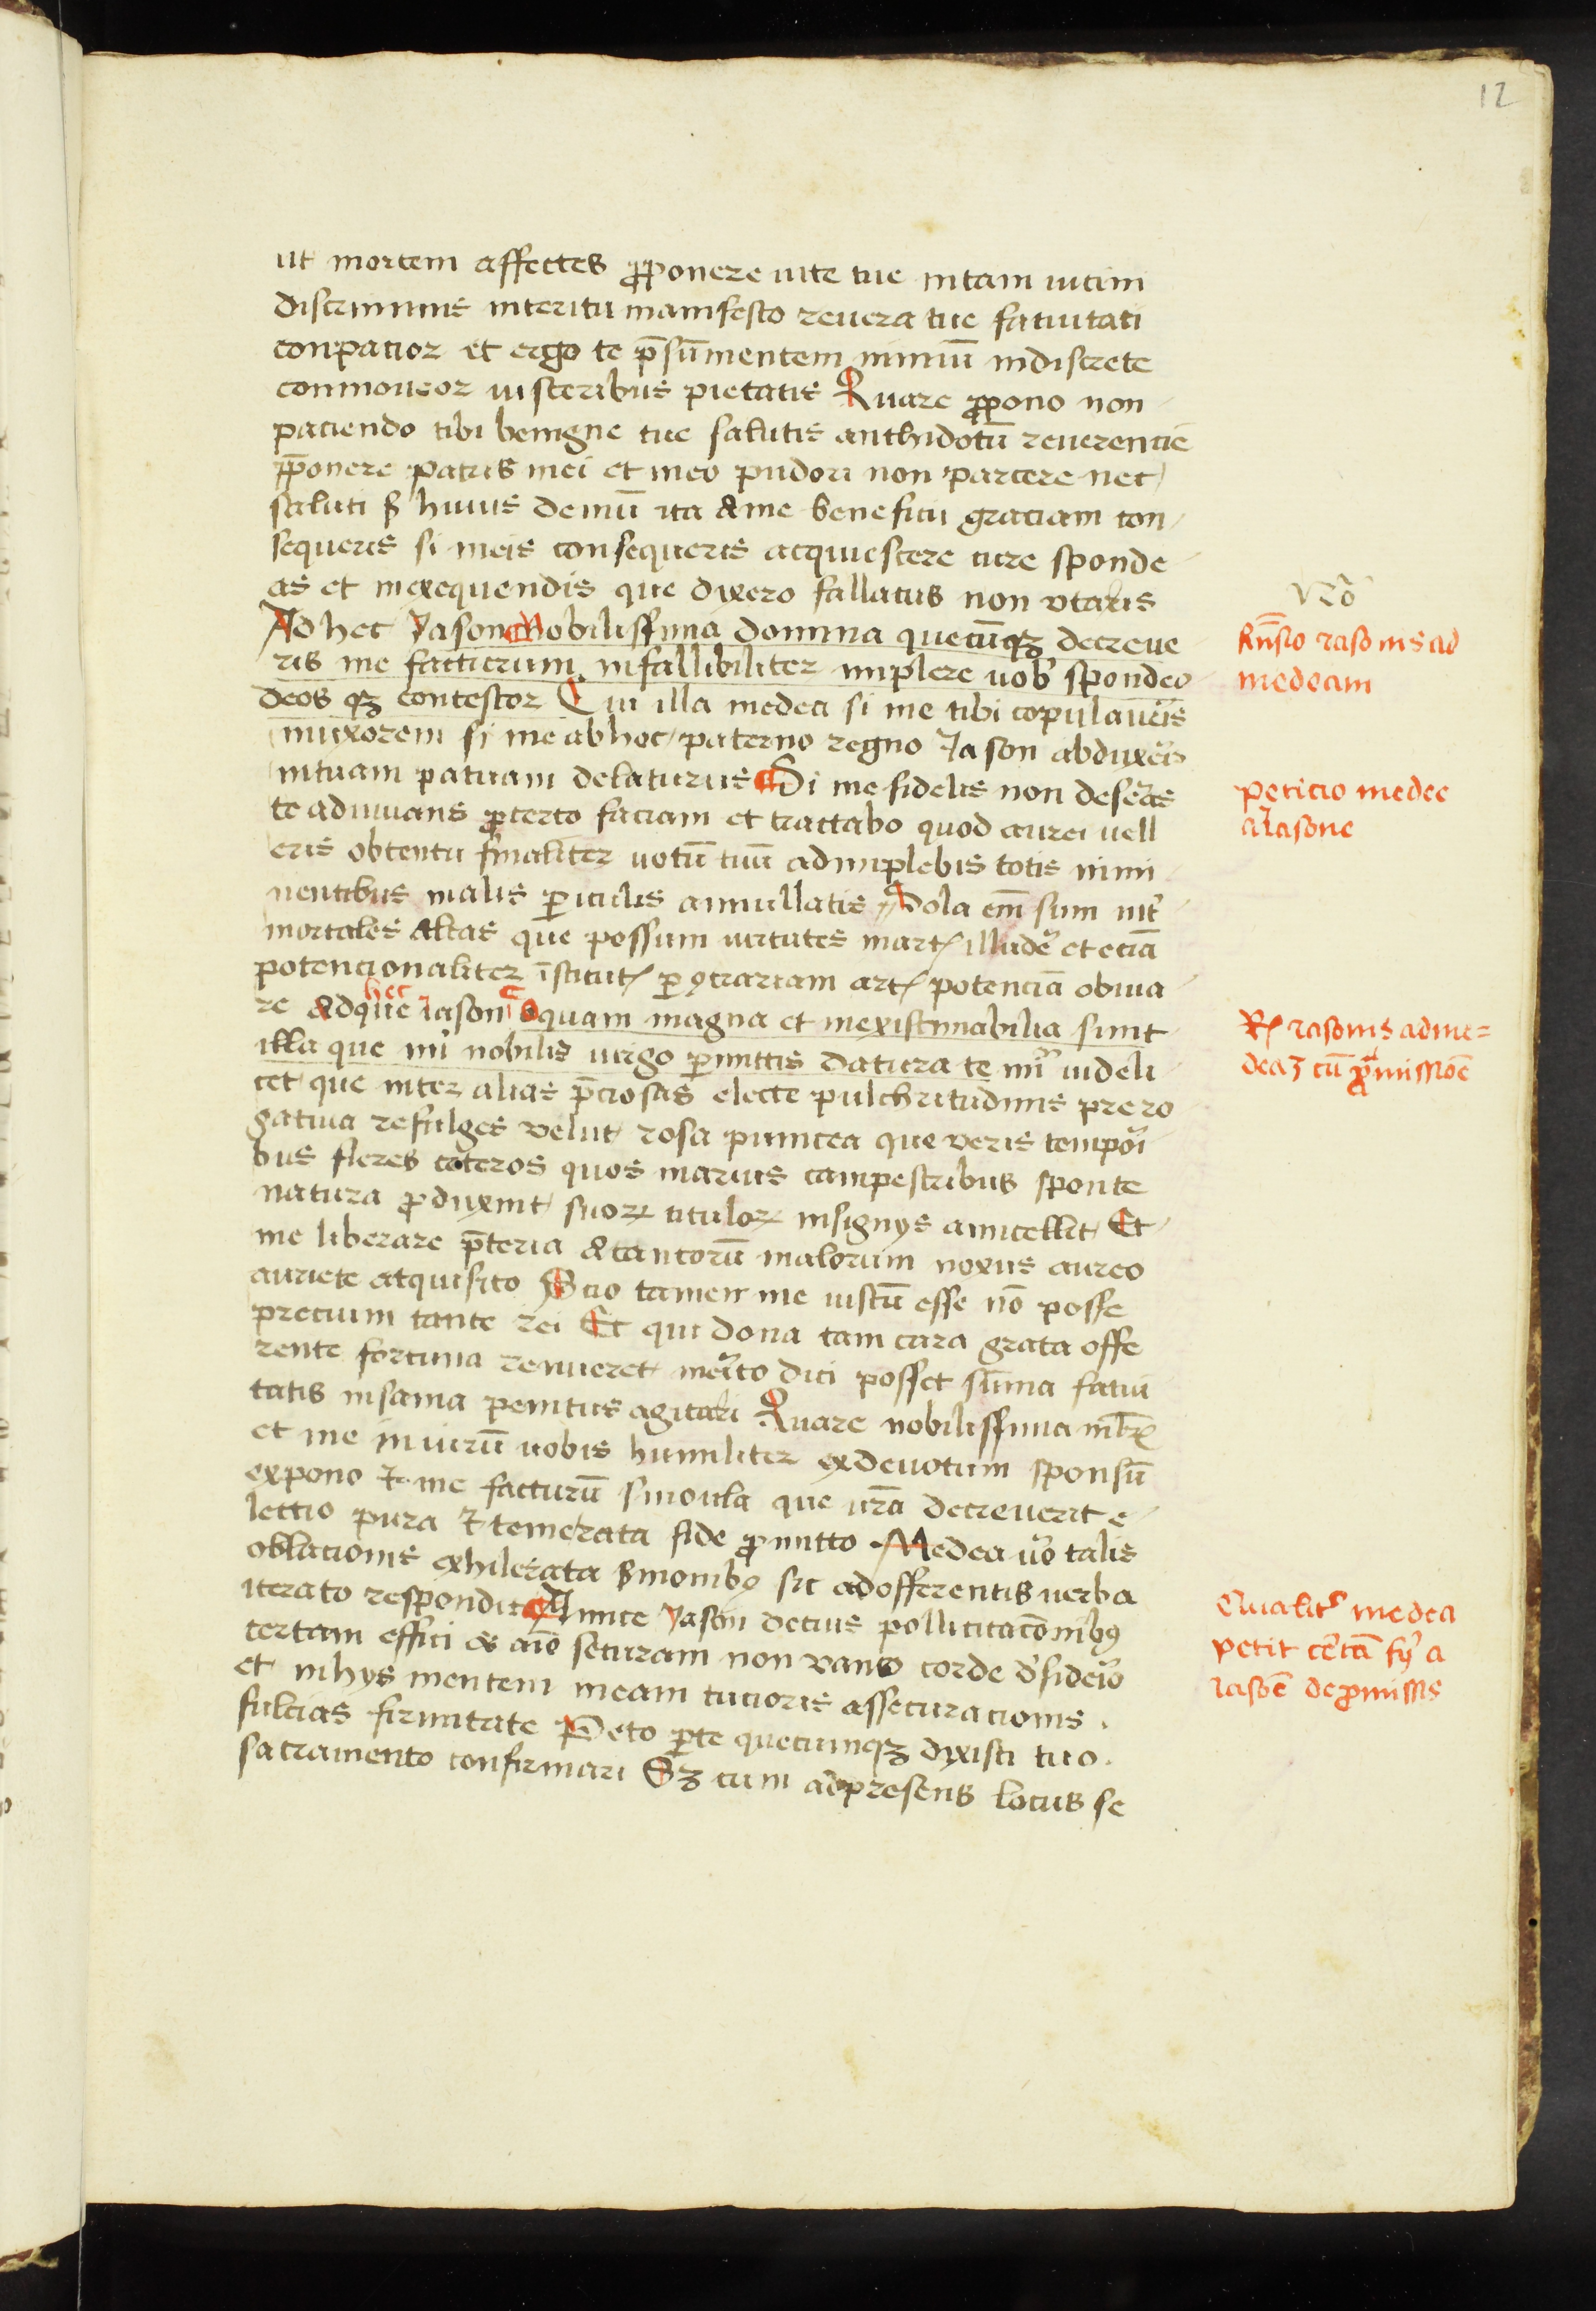 12
ut mortem affectes p̱ponere uite tue intam iutim
discriminis interitu manifesto reuera tue fatuitati
conpatior et ergo te p̄sūmentem nimiū indiscrete
conmoueor uisceribus pietatis Quare p̱pono non
paciendo tibi benigne tue salutis anthidotū reuerencie
p̄ponere patris mei et meo pudori non parcere nec
saluti ꝫ huius demū ita a me beneficii graciam con
sequeris si meis consequeris acquiescere iure sponde
as et inexequendis que dixero fallatus non vtaris
Ad hec Jason Nobilissima domina quecūqꝫ decreue
ris me facturum infallibiliter implere uob̄ spondeo
deos qꝫ contestor Cui illa medea si me tibi copulaur̄is
inuxorem si me abhoc paterno regno Jason abduxer̄
intuam patriam delaturus Si me fidelis non deser̄as
te adiuuans ꝓcerto faciam et tractabo quod aurei vell
eris obtentu finaliter uotū tuū adimplebis totis immi
nentibus malis ꝑiculis annullatis Sola em̄ sum int̄
mortales altas que possum uirtutes mart illuder̄ et eciā
potencionaliter īstitut ꝑ ꝯtrariam art potenciā obuia
re Adque hec iason O quam magna et inexistimabilia sunt
illa que mī nobilis uirgo ꝑmittis datura te mī uideli
cet que inter alias p̄ciosas electe pulchritudinis prero
gatiua refulges velut rosa punicea que veris tempor̄i
bus flores ceteros quos marius campestribus sponte
natura ꝓduxint suoꝝ tituloꝝ insignys amicellit Et
me liberare p̄teria a tantorū malorum noxus aureo
auriete acquisito Scio tamen me iustū esse nō posse
precium tante rei Et qui dona tam cara grata offe
rente fortuna renueret mer̄ito dici posset sūma fatui
tatis insania penitus agitari Quare nobilissima
et me in uirū uobis humiliter ex deuotum sponsū
expono et me facturū singula que ur̄a decreuerit e
lectio pura et temerata fide ꝓmitto Medea ūo talis
oblacionis exhilerata ẜmonibꝯ sic adofferentis verba
iterato respondit Amice Jason detius pollicitacōnibꝯ
certam effici et aīo securam non vano corde dēsidero
et inhys mentem meam tucioris assecuracionis
fulcias firmitate Peto ꝑte quecumqꝫ dyxisti tuo
sacramento confirmari Sꝫ cum adpresens locus se
Rn̄sio iasonis ad
medeam
peticio medee
a Iasone
R iasonis ad me=
deaꝫ cū ꝓmissiōe
Qualitr̄ medea
petit certā fy a
iasōe de ꝓmissis